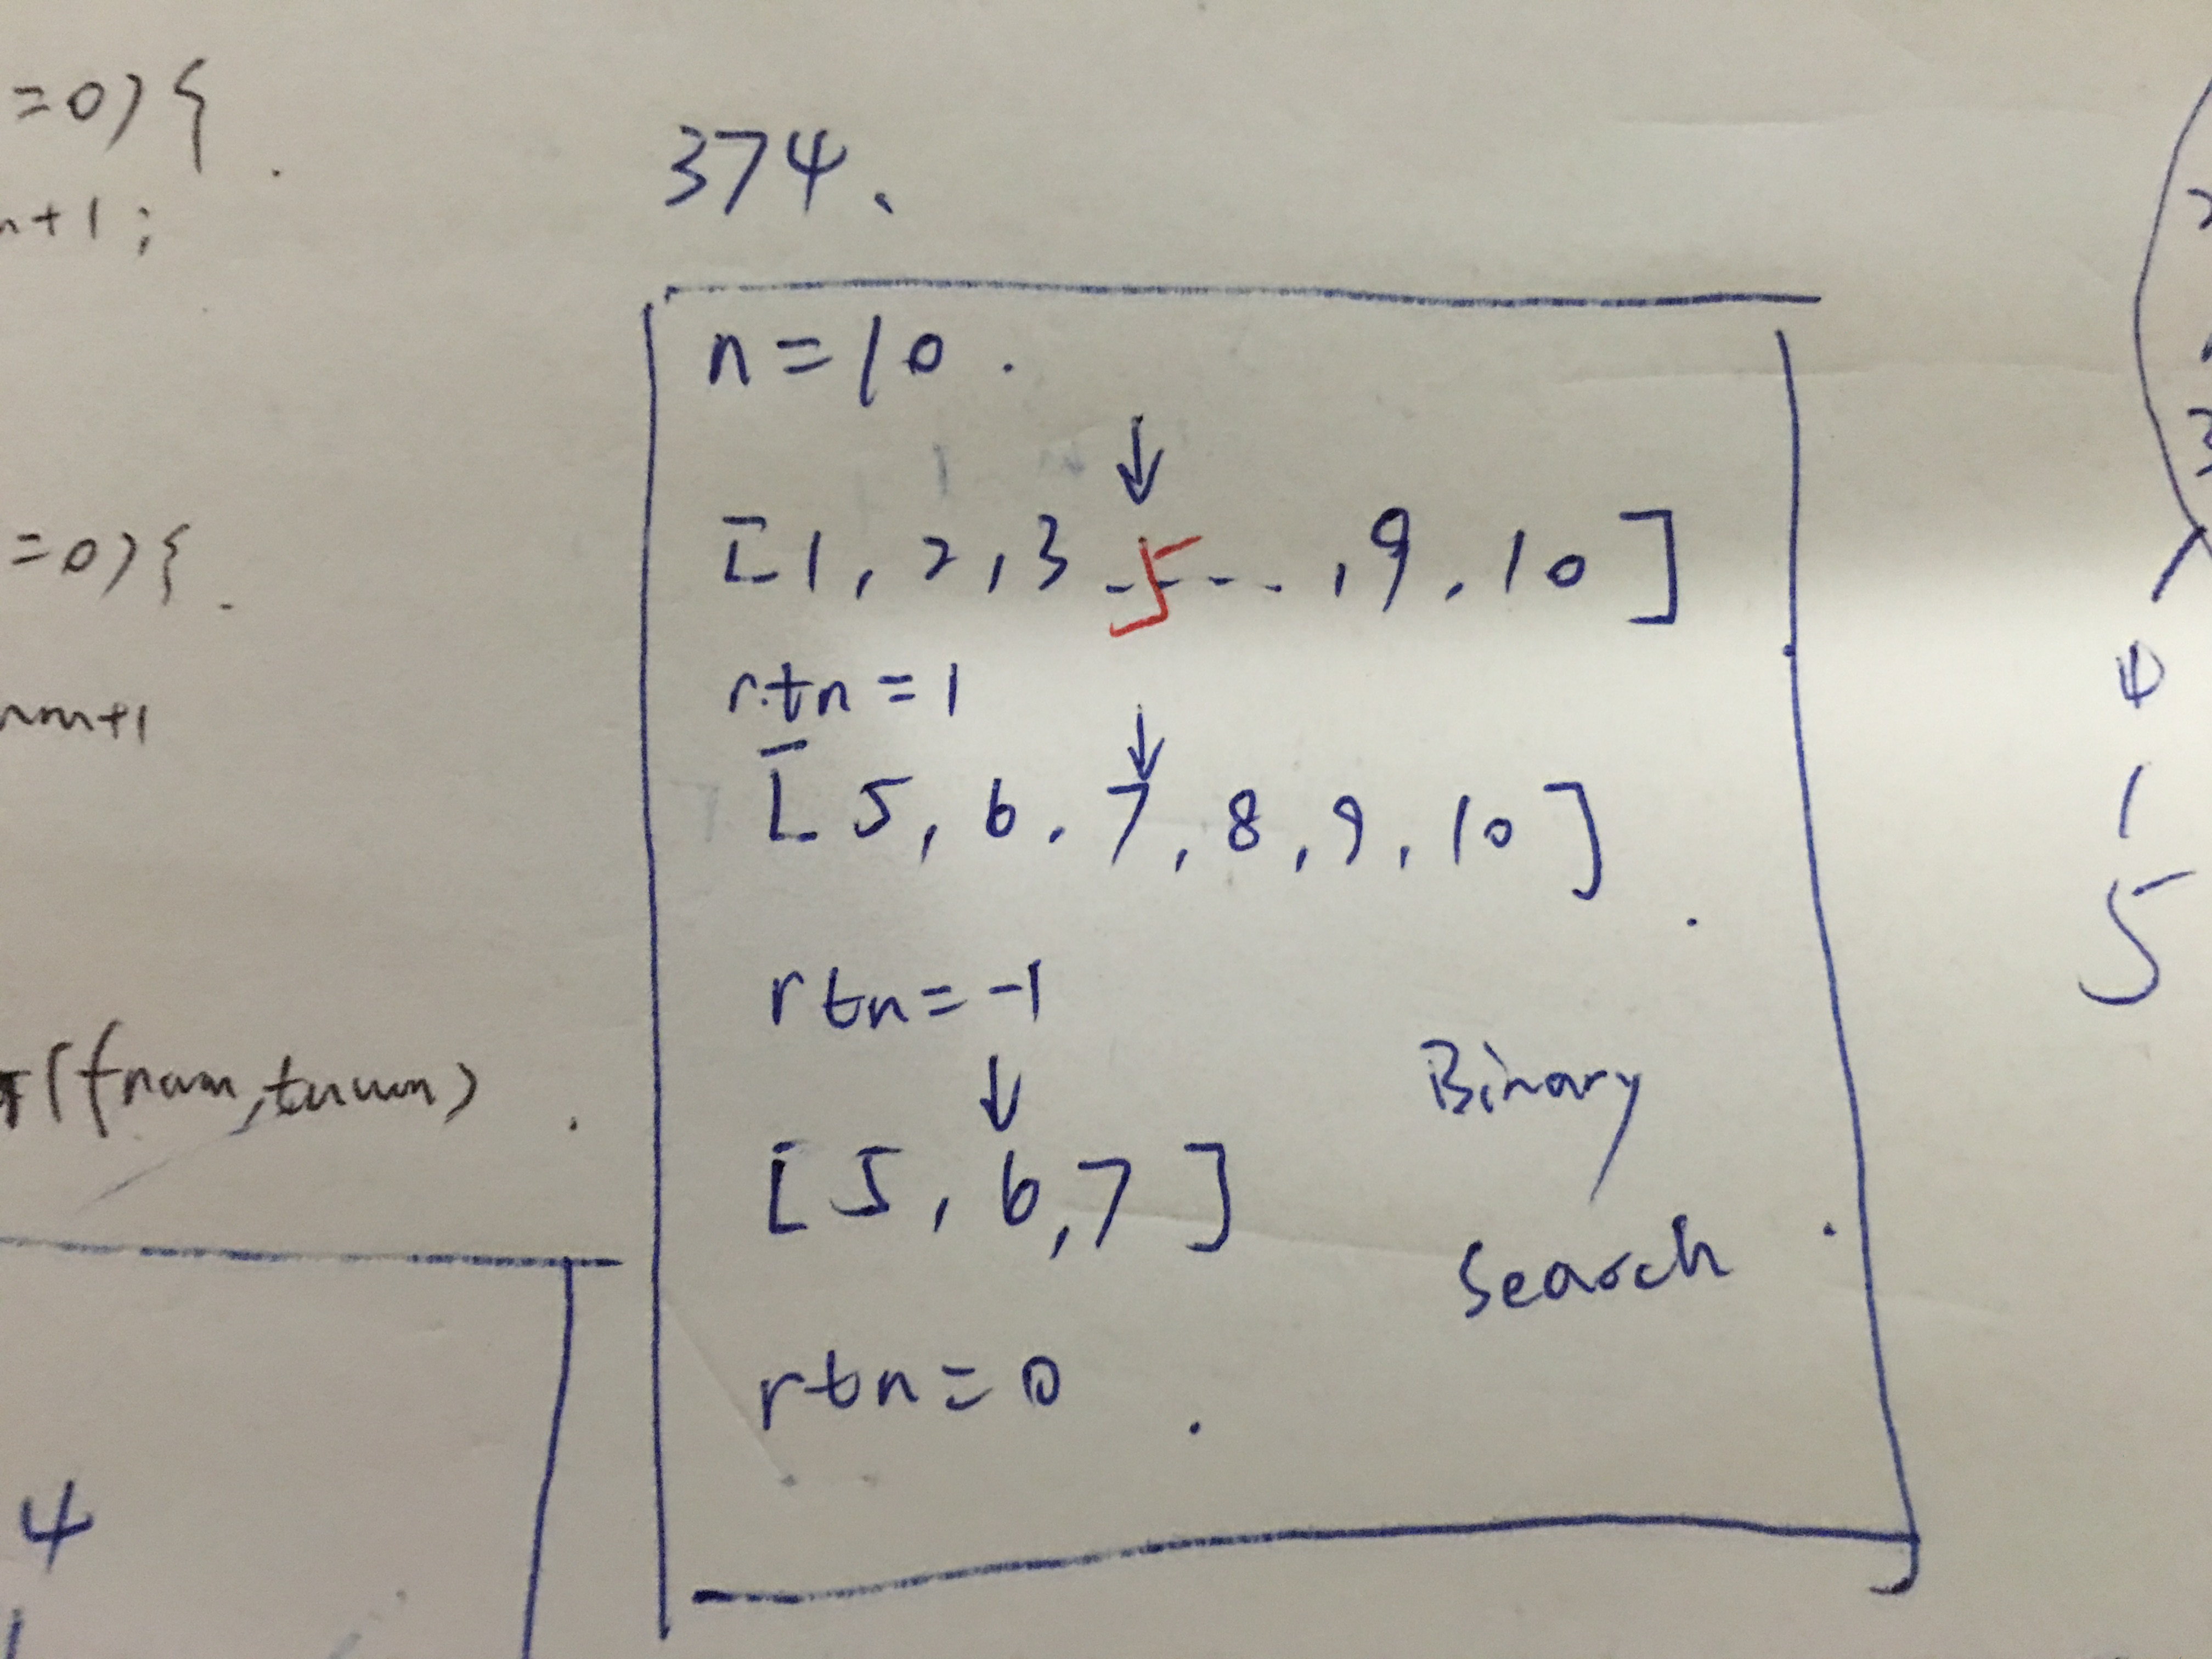 =0) {
n+1;
=0) {
num+1
(fnum, tnum)
4
374.
n=10.
[1, 2, 3 -- 5 --- , 9, 10]
rtn=1
[5, 6, 7, 8, 9, 10]
rtn=-1
[5, 6, 7]
rtn=0
Binary
Search